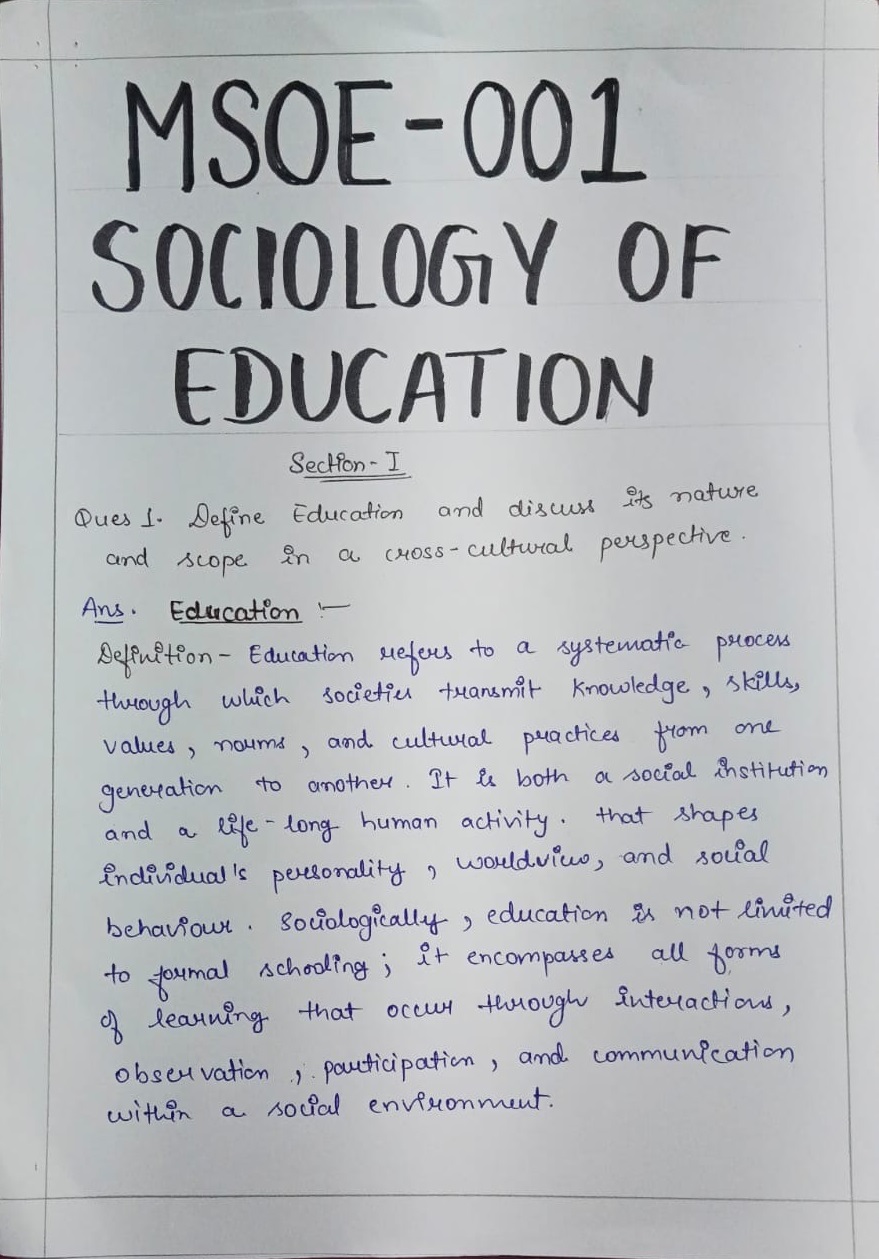 MSOE-001
SOCIOLOGY OF
EDUCATION
Section-I
Ques 1. Define Education and discuss its nature
and scope in a cross-cultural perspective.
Ans. Education :-
Definition - Education refers to a systematic process
through which societies transmit knowledge, skills,
values, norms, and cultural practices from one
generation to another. It is both a social institution
and a life-long human activity. that shapes
individual's personality, worldview, and social
behaviour. Sociologically, education is not limited
to formal schooling; it encompasses all forms
of learning that occur through interactions,
observation, participation, and communication
within a social environment.